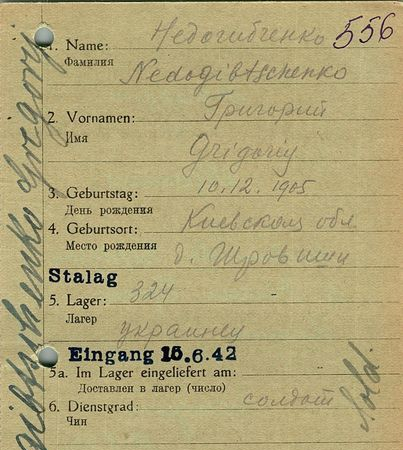 1. Name: Недогибченко 556
Фамилия Nedogibtschenko
2. Vornamen: Григорий
Имя Grigoriy
3. Geburtstag: 10.12.1905
День рождения
4. Geburtsort: Киевской обл
Место рождения д.
Stalag
5. Lager: 324
Лагер украинец
Eingang 15.6.42
5a. Im Lager eingeliefert am:
Доставлен в лагер (число)
6. Dienstgrad: солдат
Чин Sold.
gibtschenko Gregorj